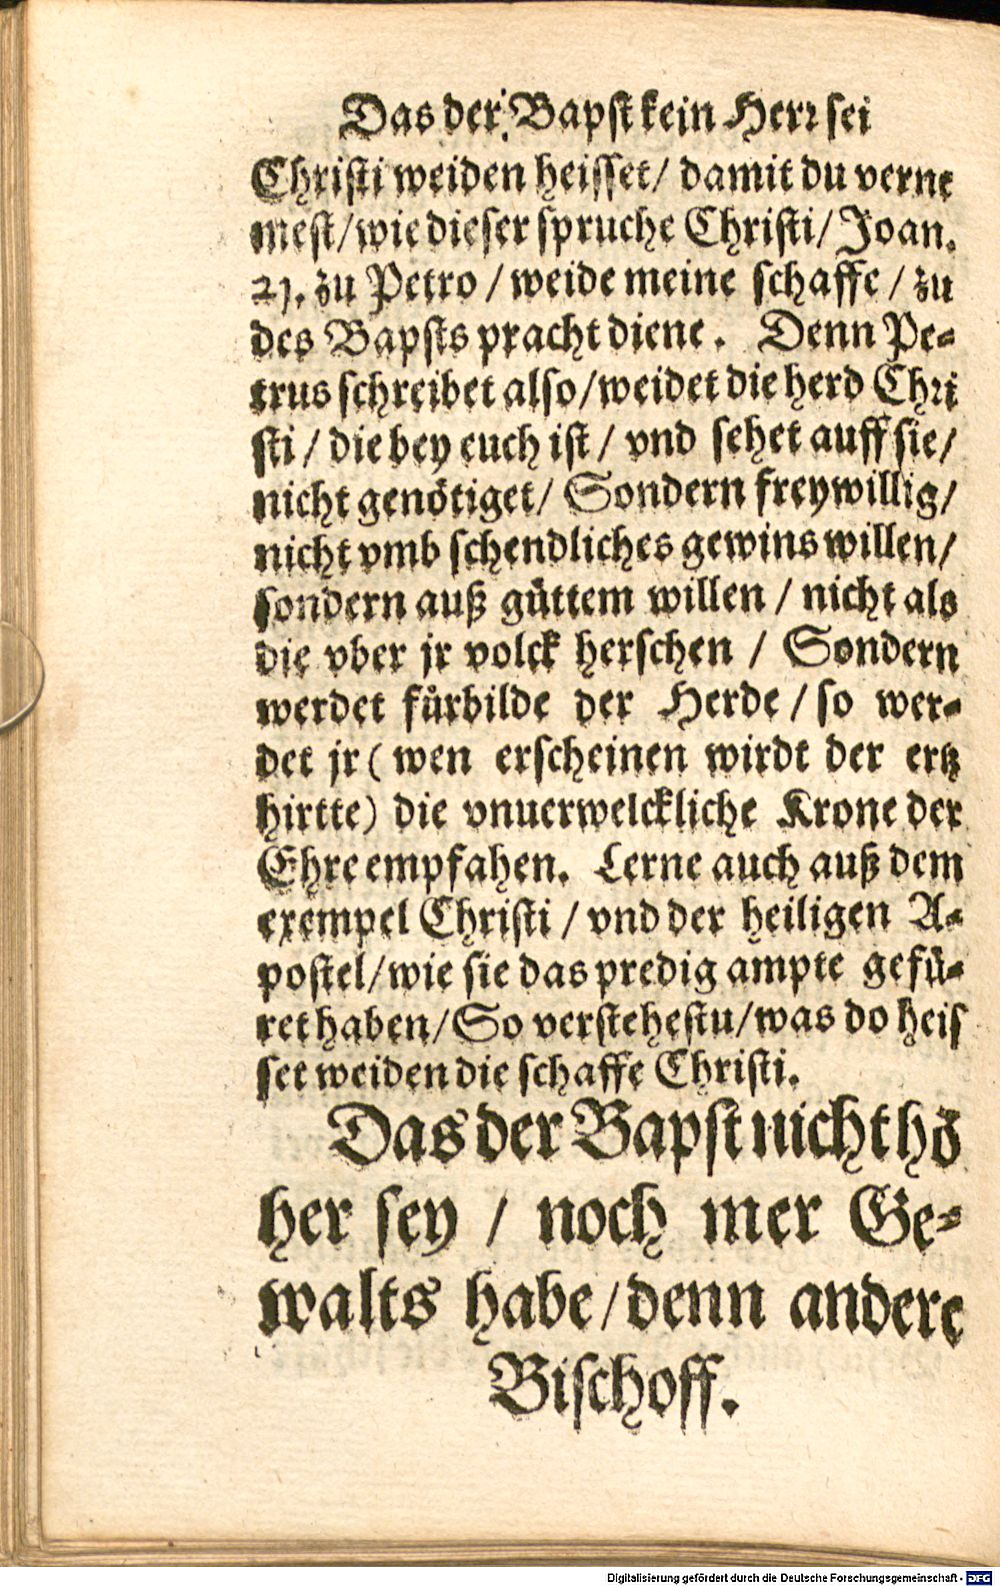 Das der Bapst kein Herr sei
Christi weiden heisset/ damit du verne
mest/wie dieser spruche Christi/ Joan.
21. zu Petro / weide meine schaffe / zu
des Bapsts pracht diene. Denn Pe-
trus schreibet also/weidet die herd Chri
sti / die bey euch ist / vnd sehet auff sie/
nicht genötiget/ Sondern freywillig/
nicht vmb schendliches gewins willen/
sondern auß güttem willen / nicht als
die vber jr volck herschen / Sondern
werdet fürbilde der Herde / so wer-
det jr ( wen erscheinen wirdt der ertz
hirtte) die vnuerwelckliche Krone der
Ehre empfahen. Lerne auch auß dem
exempel Christi / vnd der heiligen A-
postel/wie sie das predig ampte gefü-
ret haben/So verstehestu/was do heis
set weiden die schaffe Christi.
Das der Bapst nicht hö
her sey / noch mer Ge-
walts habe/denn andere
Bischoff.
Digitalisierung gefördert durch die Deutsche Forschungsgemeinschaft - DFG